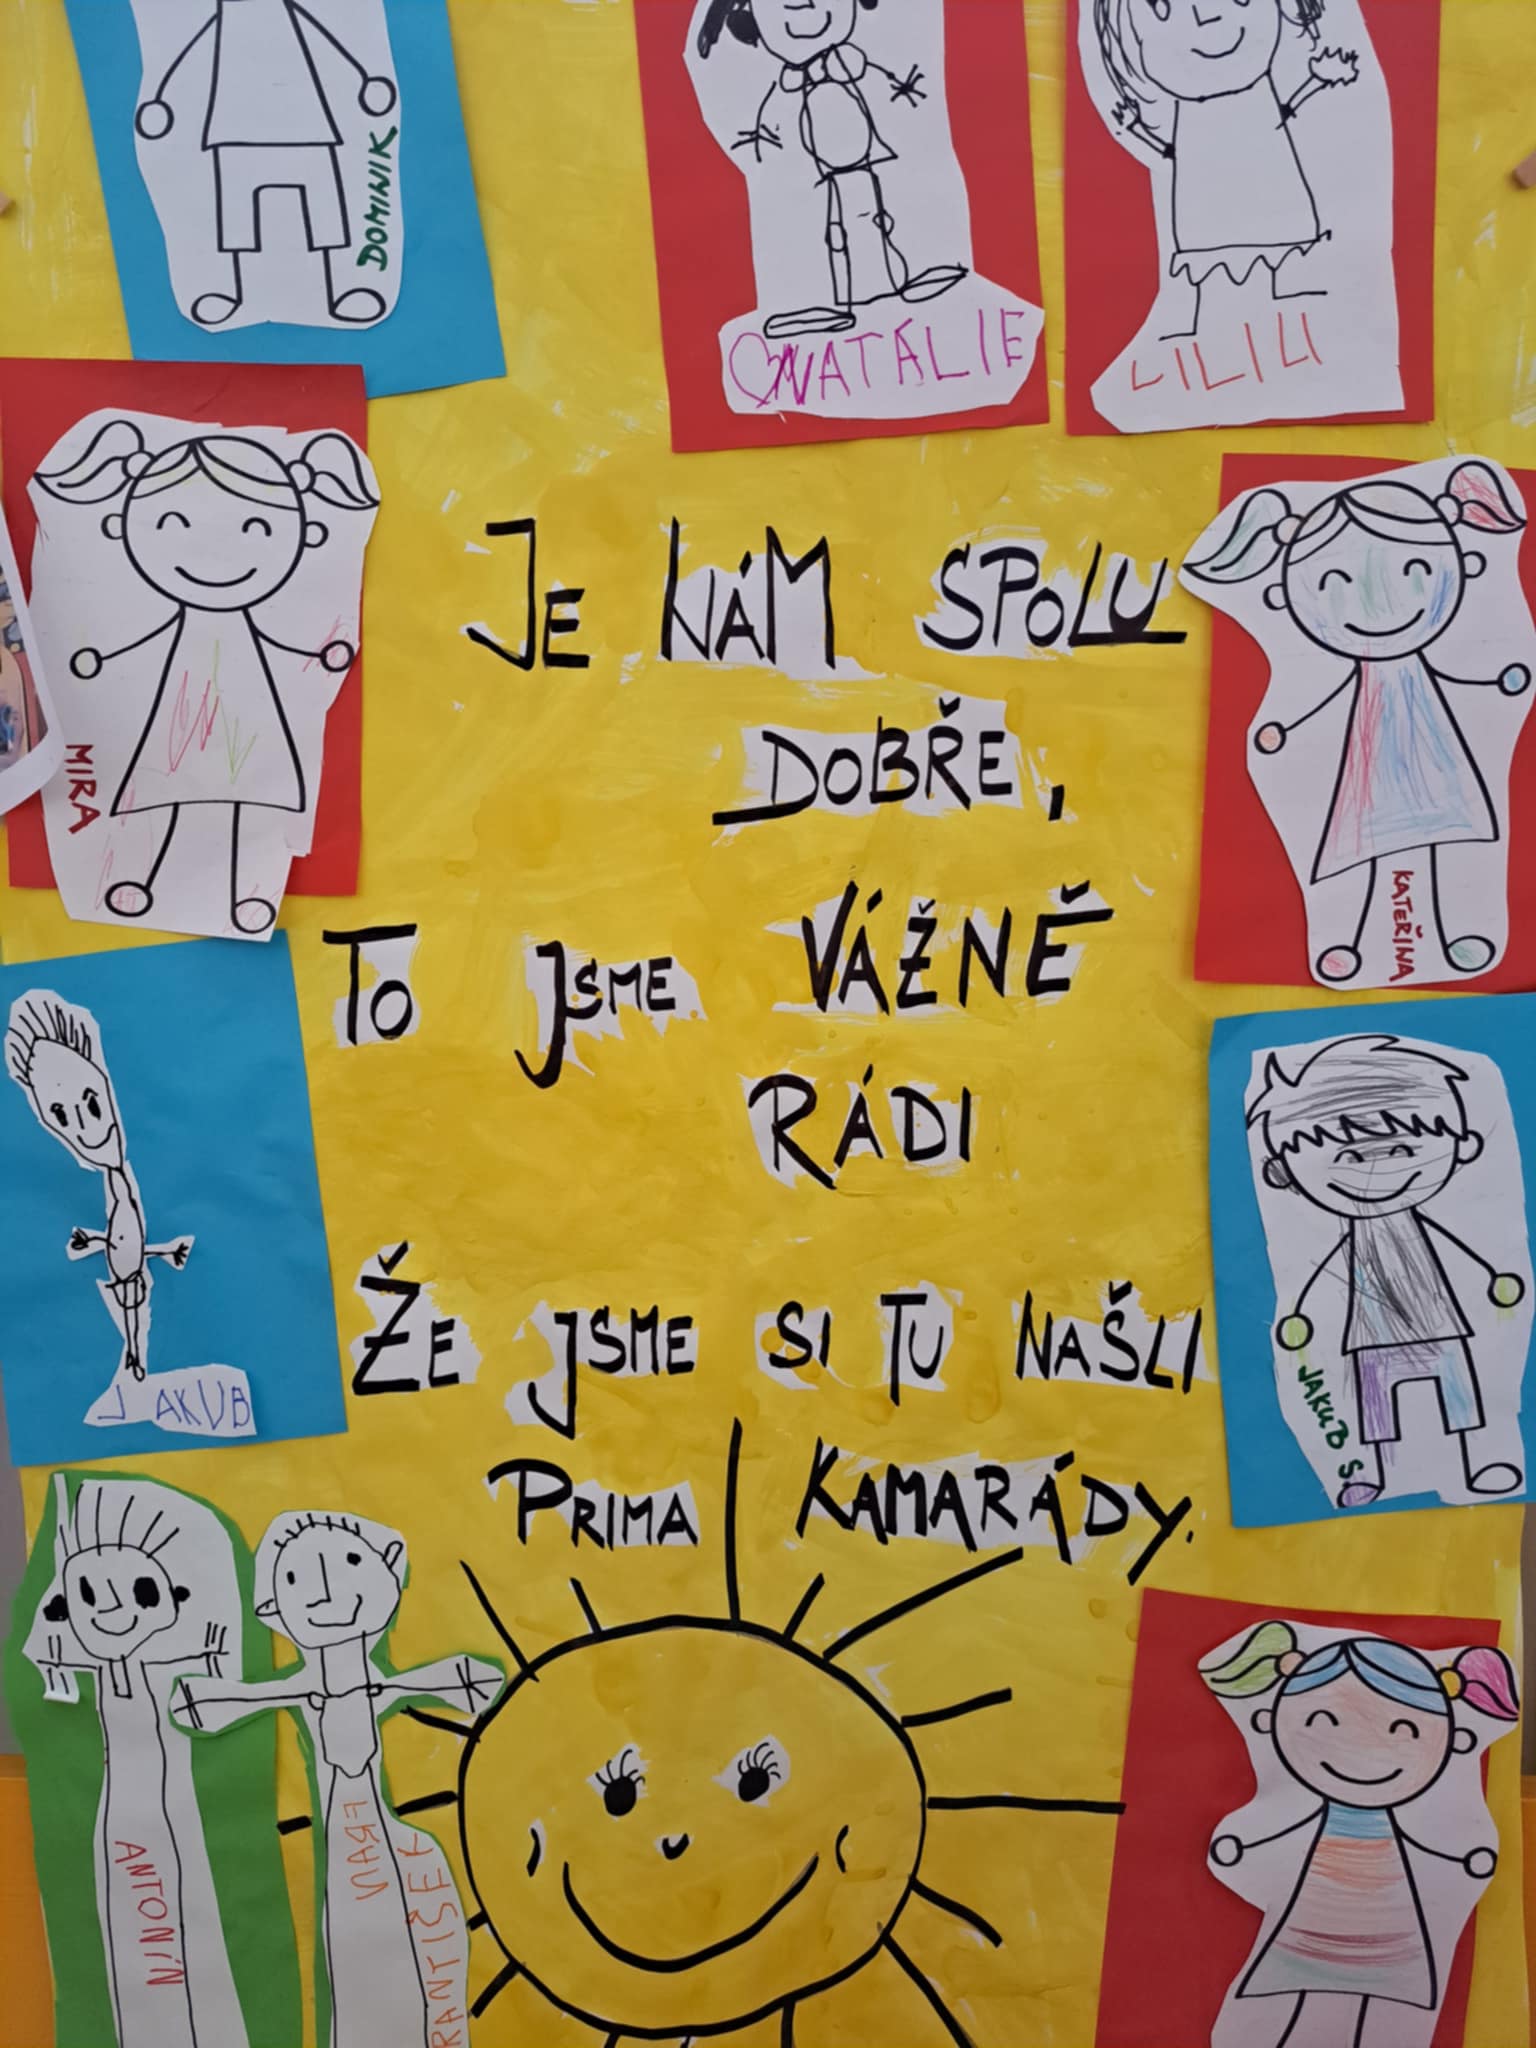 DOMINIK
NATÁLIE
LILILI
JE NÁM SPOLU
DOBŘE,
MIRA
KATEŘINA
TO JSME VÁŽNĚ
RÁDI
ŽE JSME SI TU NAŠLI
JAKUB
JAKUB S.
PRIMA KAMARÁDY.
ANTONÍN
RANTIŠEK